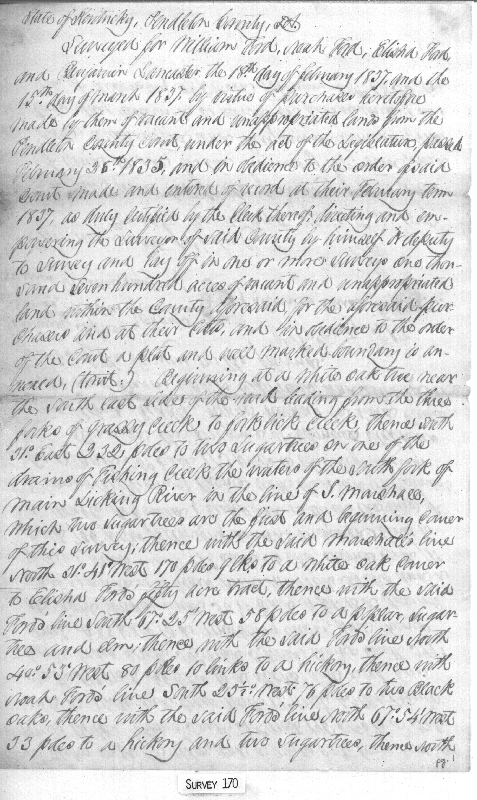 State of Kentucky, Pendleton County, Sct.
Surveyed for William Ford, Noah Ford, Elisha Ford
and Benjamin Lancaster the 18th day of february 1837, and the
15th day of march 1837, by virtue of purchases heretofore
made by them of vacant and unappropriated lands from the
Pendleton County Court, under the act of the Legislature, passed
February 28th 1835, and in obedience to the order of said
Court made and entered of record at their February term
1837, as duly certified by the Clerk thereof, directing and em-
powering the Surveyor of said County by himself or deputy
to survey and lay off in one or more surveys one thou-
sand seven hundred acres of vacant and unappropriated
land within the County aforesaid for the aforesaid pur-
chasers and at their Cost, and in obedience to the order
of the Court a plat and well marked boundary is an-
nexed, (towit:) Beginning at a white oak tree near
the South East side of the road leading from the three
forks of Grassy Creek to fork lick Creek, thence south
31° East 232 poles to two Sugartrees on one of the
drains of Fishing Creek the waters of the south fork of
main Licking River in the line of S. Marshall,
which two sugartrees are the first and beginning Corner
of this survey; thence with the said Marshall's line
North 31° 41' West 170 poles 9 lks to a white oak Corner
to Elisha Fords fifty acre tract, thence with the said
Ford's line South 67° 25' West 58 poles to a poplar, sugar-
tree and elm; thence with the said Ford's line North
40° 55' West 80 poles 10 links to a hickory, thence with
Noah Fords' line South 25½° West 76 poles to two Black
oaks, thence with the said Fords' line North 67° 54' West
33 poles to a hickory and two Sugartrees, thence north
pg. 1
SURVEY 170